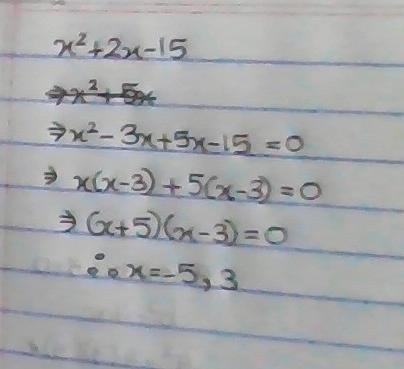 x²+2x-15
⇒x²+5x
⇒x²-3x+5x-15=0
⇒ x(x-3)+5(x-3)=0
⇒(x+5)(x-3)=0
∴x=-5,3